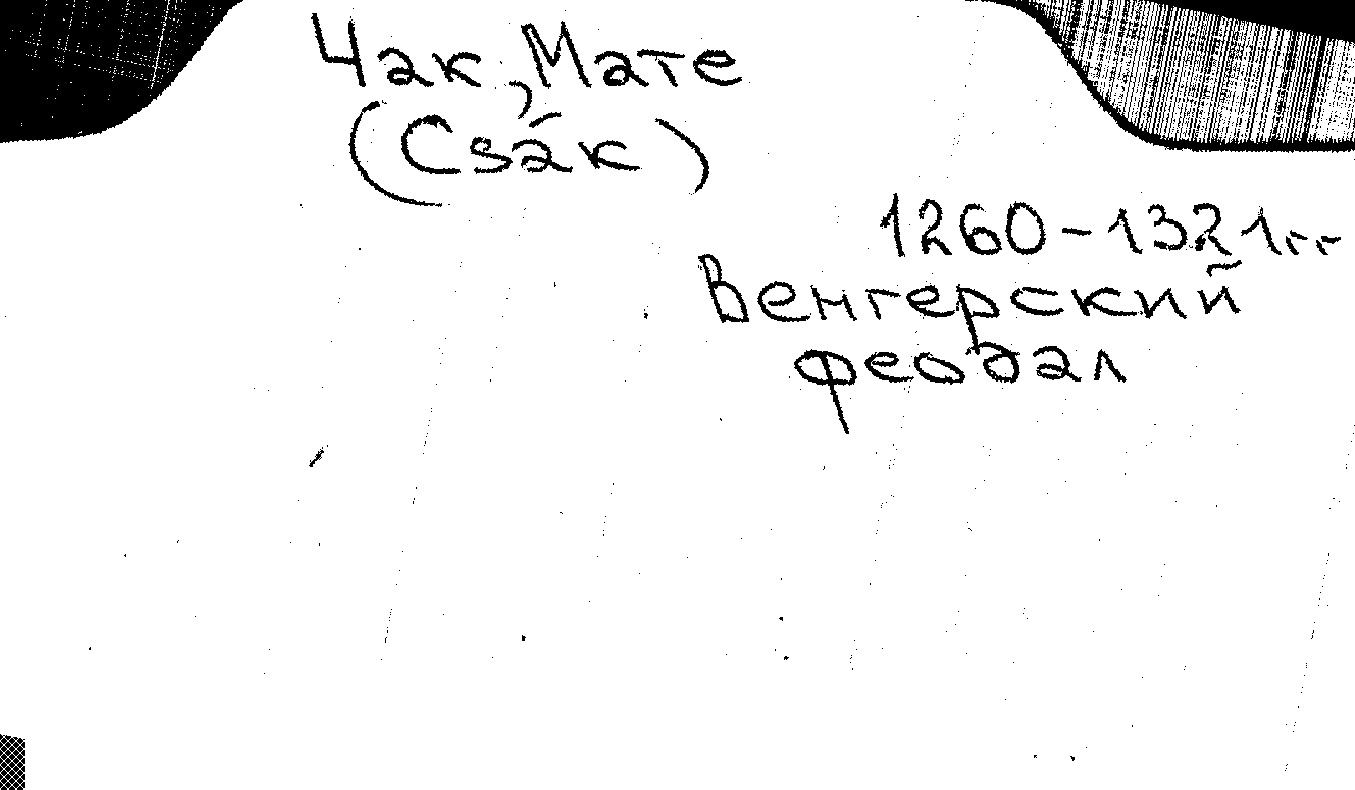 Чак, Мате
(Csák)
1260-1321гг
Венгерский
феодал